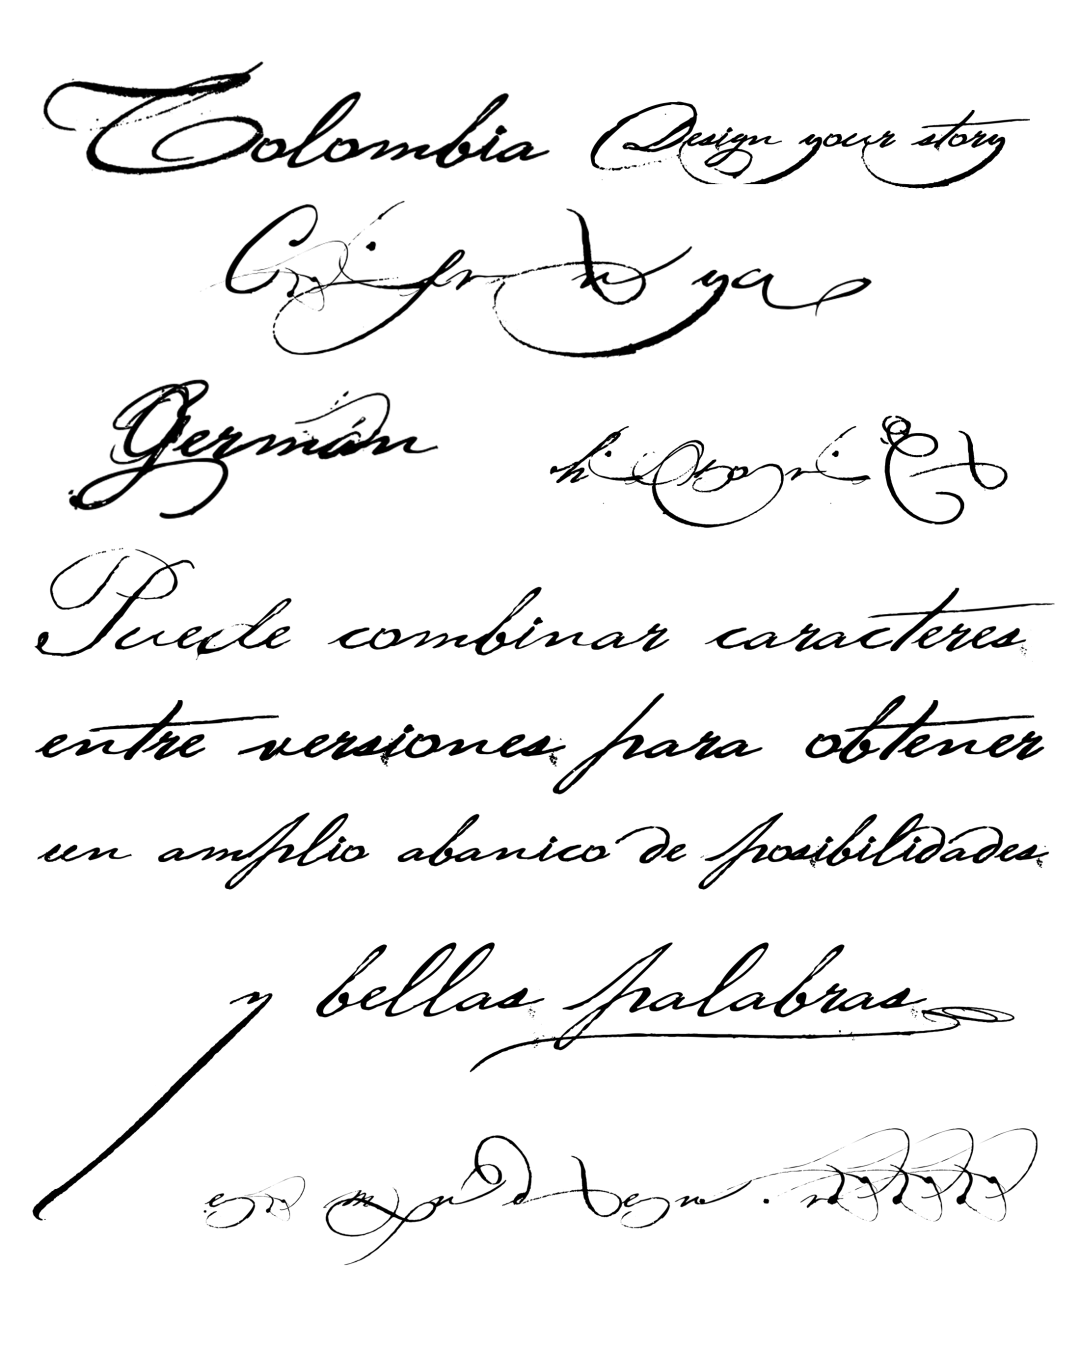 Colombia Design your story
Germán
Puede combinar caracteres
entre versiones para obtener
un amplio abanico de posibilidades
y bellas palabras